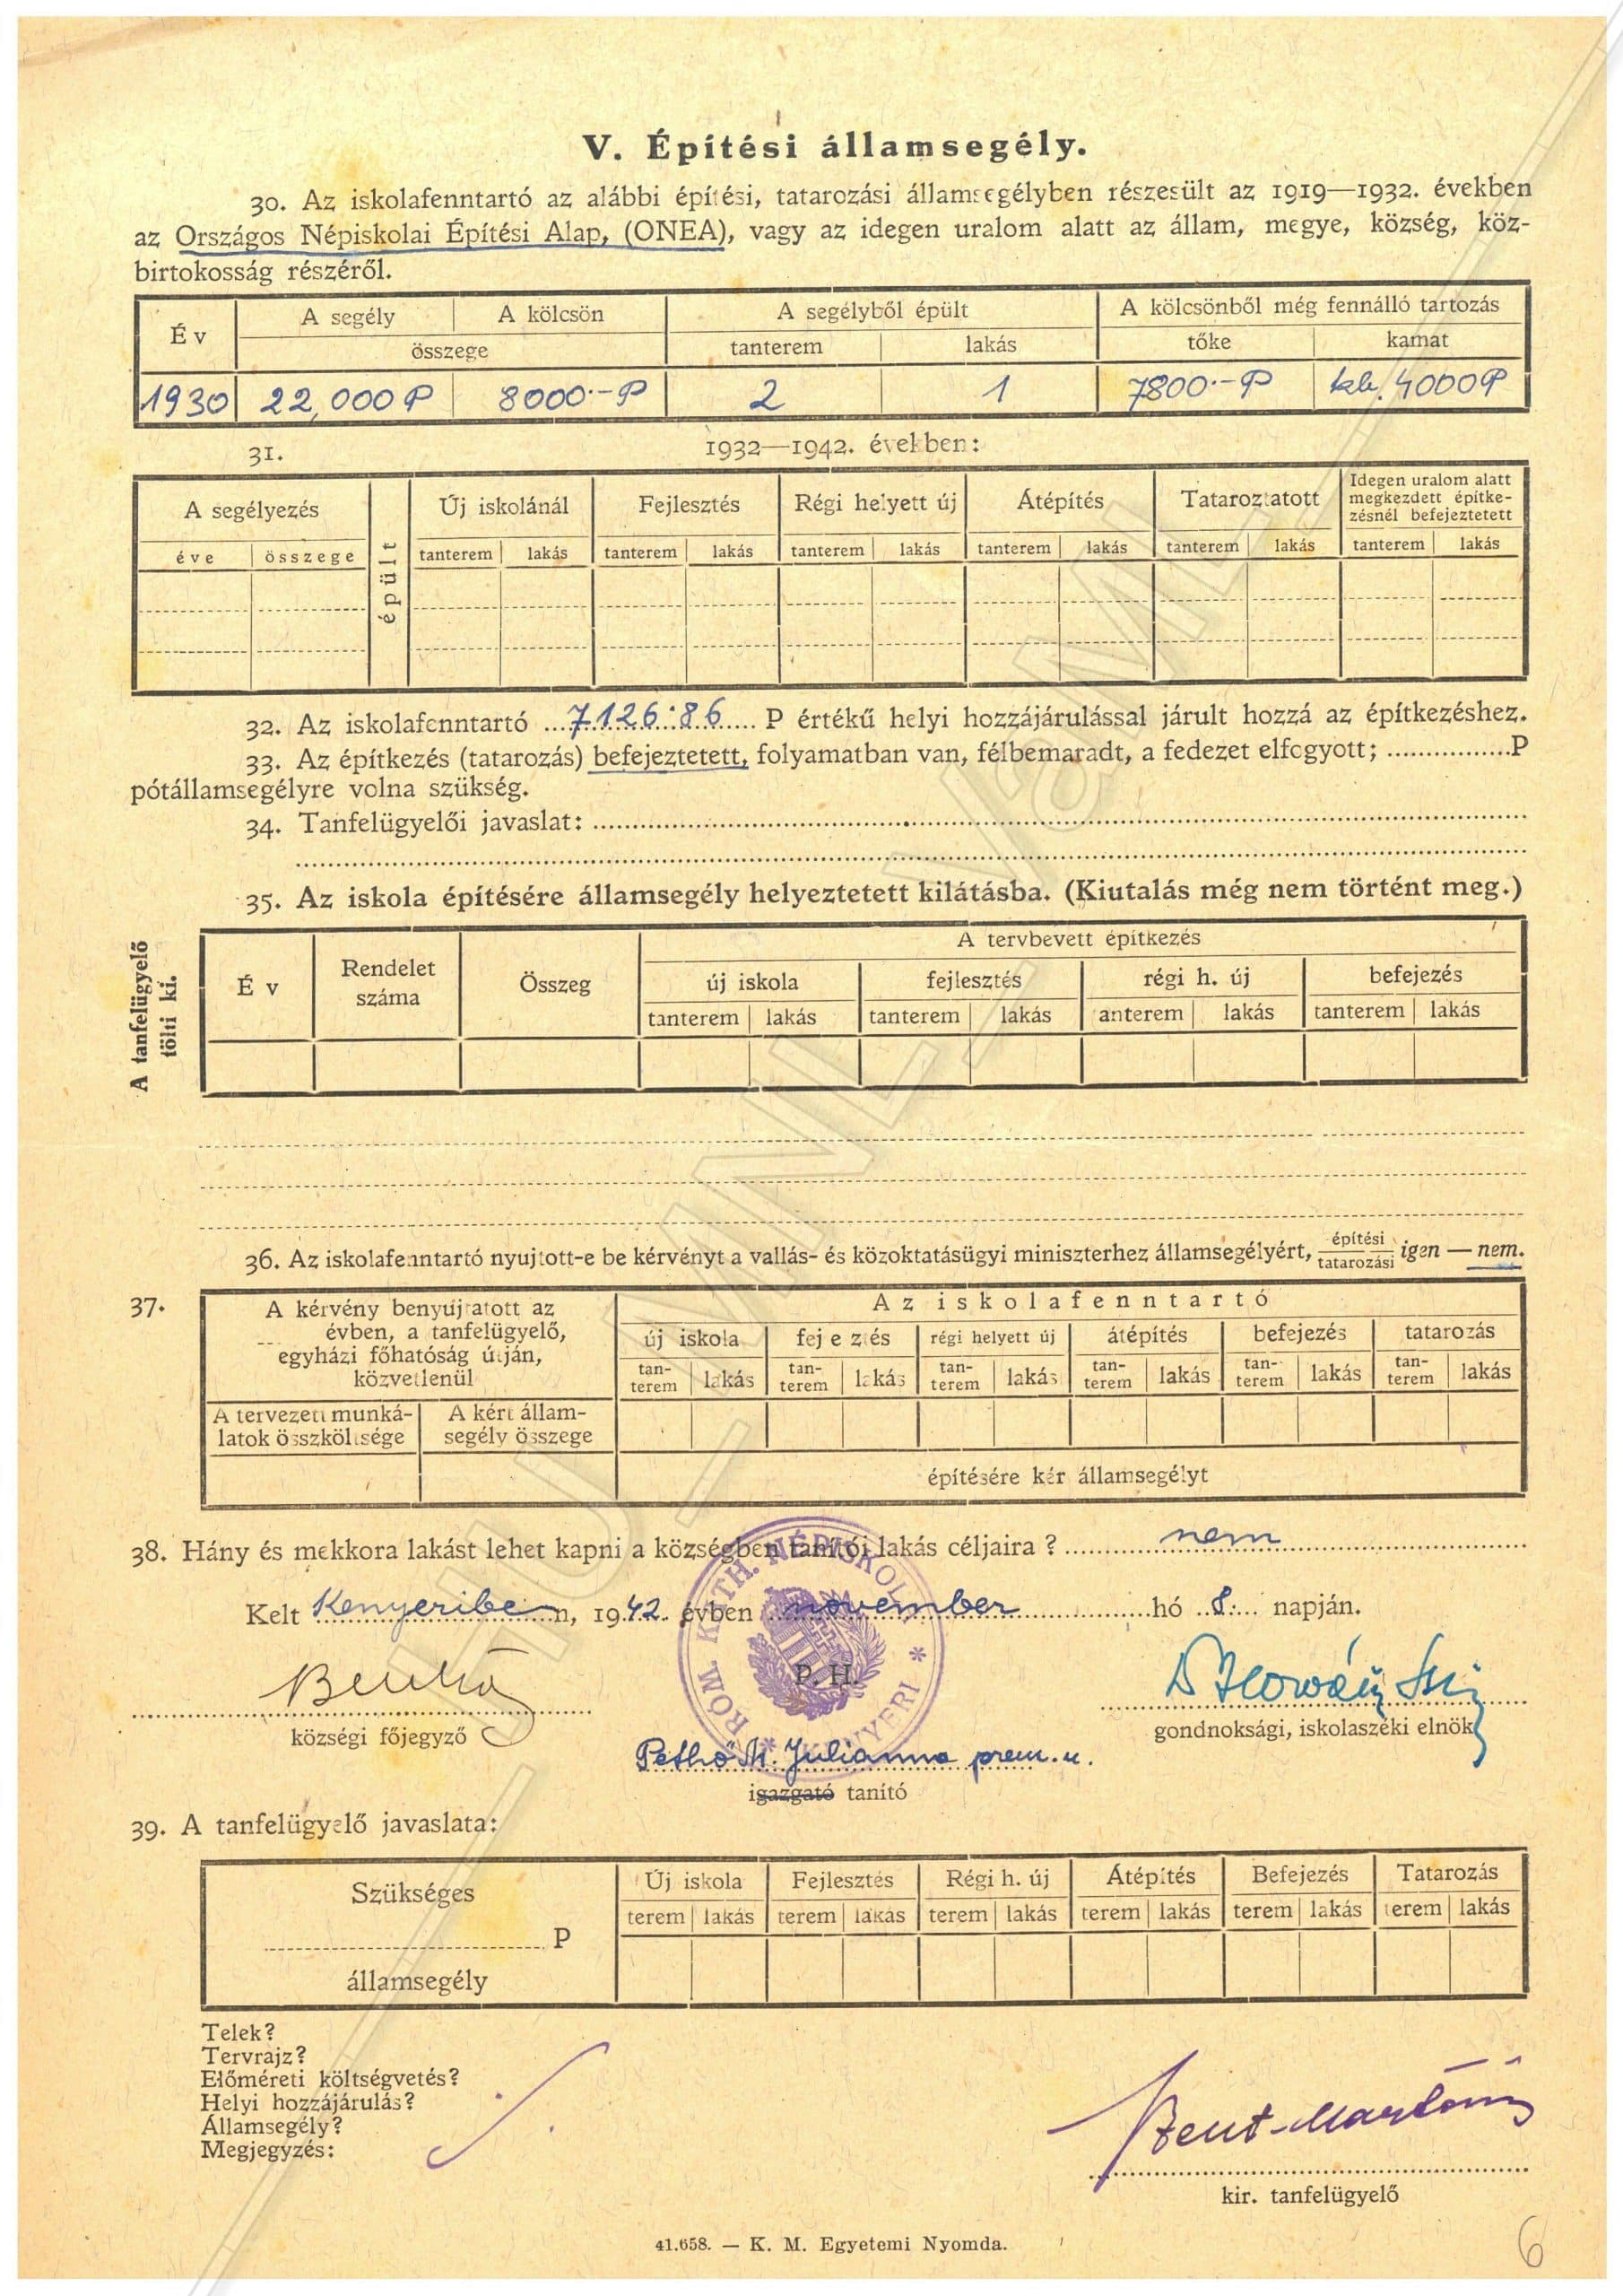 V. Építési államsegély.
30. Az iskolafenntartó az alábbi építési, tatarozási államsegélyben részesült az 1919—1932. években
az Országos Népiskolai Építési Alap, (ONEA), vagy az idegen uralom alatt az állam, megye, község, köz-
birtokosság részéről.
Év A segély A kölcsön A segélyből épült A kölcsönből még fennálló tartozás
összege tanterem lakás tőke kamat
1930 22,000 P 8000.-P 2 1 7800.-P kb. 4000 P
31. 1932—1942. években:
A segélyezés épült Új iskolánál Fejlesztés Régi helyett új Átépítés Tataroztatott Idegen uralom alatt
megkezdett építke-
zésnél befejeztetett
éve összege tanterem lakás tanterem lakás tanterem lakás tanterem lakás tanterem lakás tanterem lakás
32. Az iskolafenntartó 7126.86 P értékű helyi hozzájárulással járult hozzá az építkezéshez.
33. Az építkezés (tatarozás) befejeztetett, folyamatban van, félbemaradt, a fedezet elfogyott; P
pótállamsegélyre volna szükség.
34. Tanfelügyelői javaslat:
35. Az iskola építésére államsegély helyeztetett kilátásba. (Kiutalás még nem történt meg.)
A tanfelügyelő
tölti ki.
Év Rendelet
száma Összeg A tervbevett építkezés
új iskola fejlesztés régi h. új befejezés
tanterem lakás tanterem lakás anterem lakás tanterem lakás
36. Az iskolafenntartó nyujtott-e be kérvényt a vallás- és közoktatásügyi miniszterhez államsegélyért, építési
tatarozási igen — nem.
37. A kérvény benyujtatott az
évben, a tanfelügyelő,
egyházi főhatóság útján,
közvetlenül
Az iskolafenntartó
új iskola fej e ztés régi helyett új átépítés befejezés tatarozás
tan-
terem lakás tan-
terem lakás tan-
terem lakás tan-
terem lakás tan-
terem lakás tan-
terem lakás
A tervezett munká-
latok összköltsége A kért állam-
segély összege
építésére kér államsegélyt
38. Hány és mekkora lakást lehet kapni a községben tanítói lakás céljaira? nem
Kelt Kenyeriben, 1942. évben november hó 8. napján.
RÓM. KATH. NÉPISKOLA * KENYERI *
P. H.
községi főjegyző
gondnoksági, iskolaszéki elnök
Pethő M. Julianna prem. n.
igazgató tanító
39. A tanfelügyelő javaslata:
Szükséges
P
államsegély
Új iskola Fejlesztés Régi h. új Átépítés Befejezés Tatarozás
terem lakás terem lakás terem lakás terem lakás terem lakás terem lakás
Telek?
Tervrajz?
Előméreti költségvetés?
Helyi hozzájárulás?
Államsegély?
Megjegyzés:
kir. tanfelügyelő
41.658. — K. M. Egyetemi Nyomda.
6